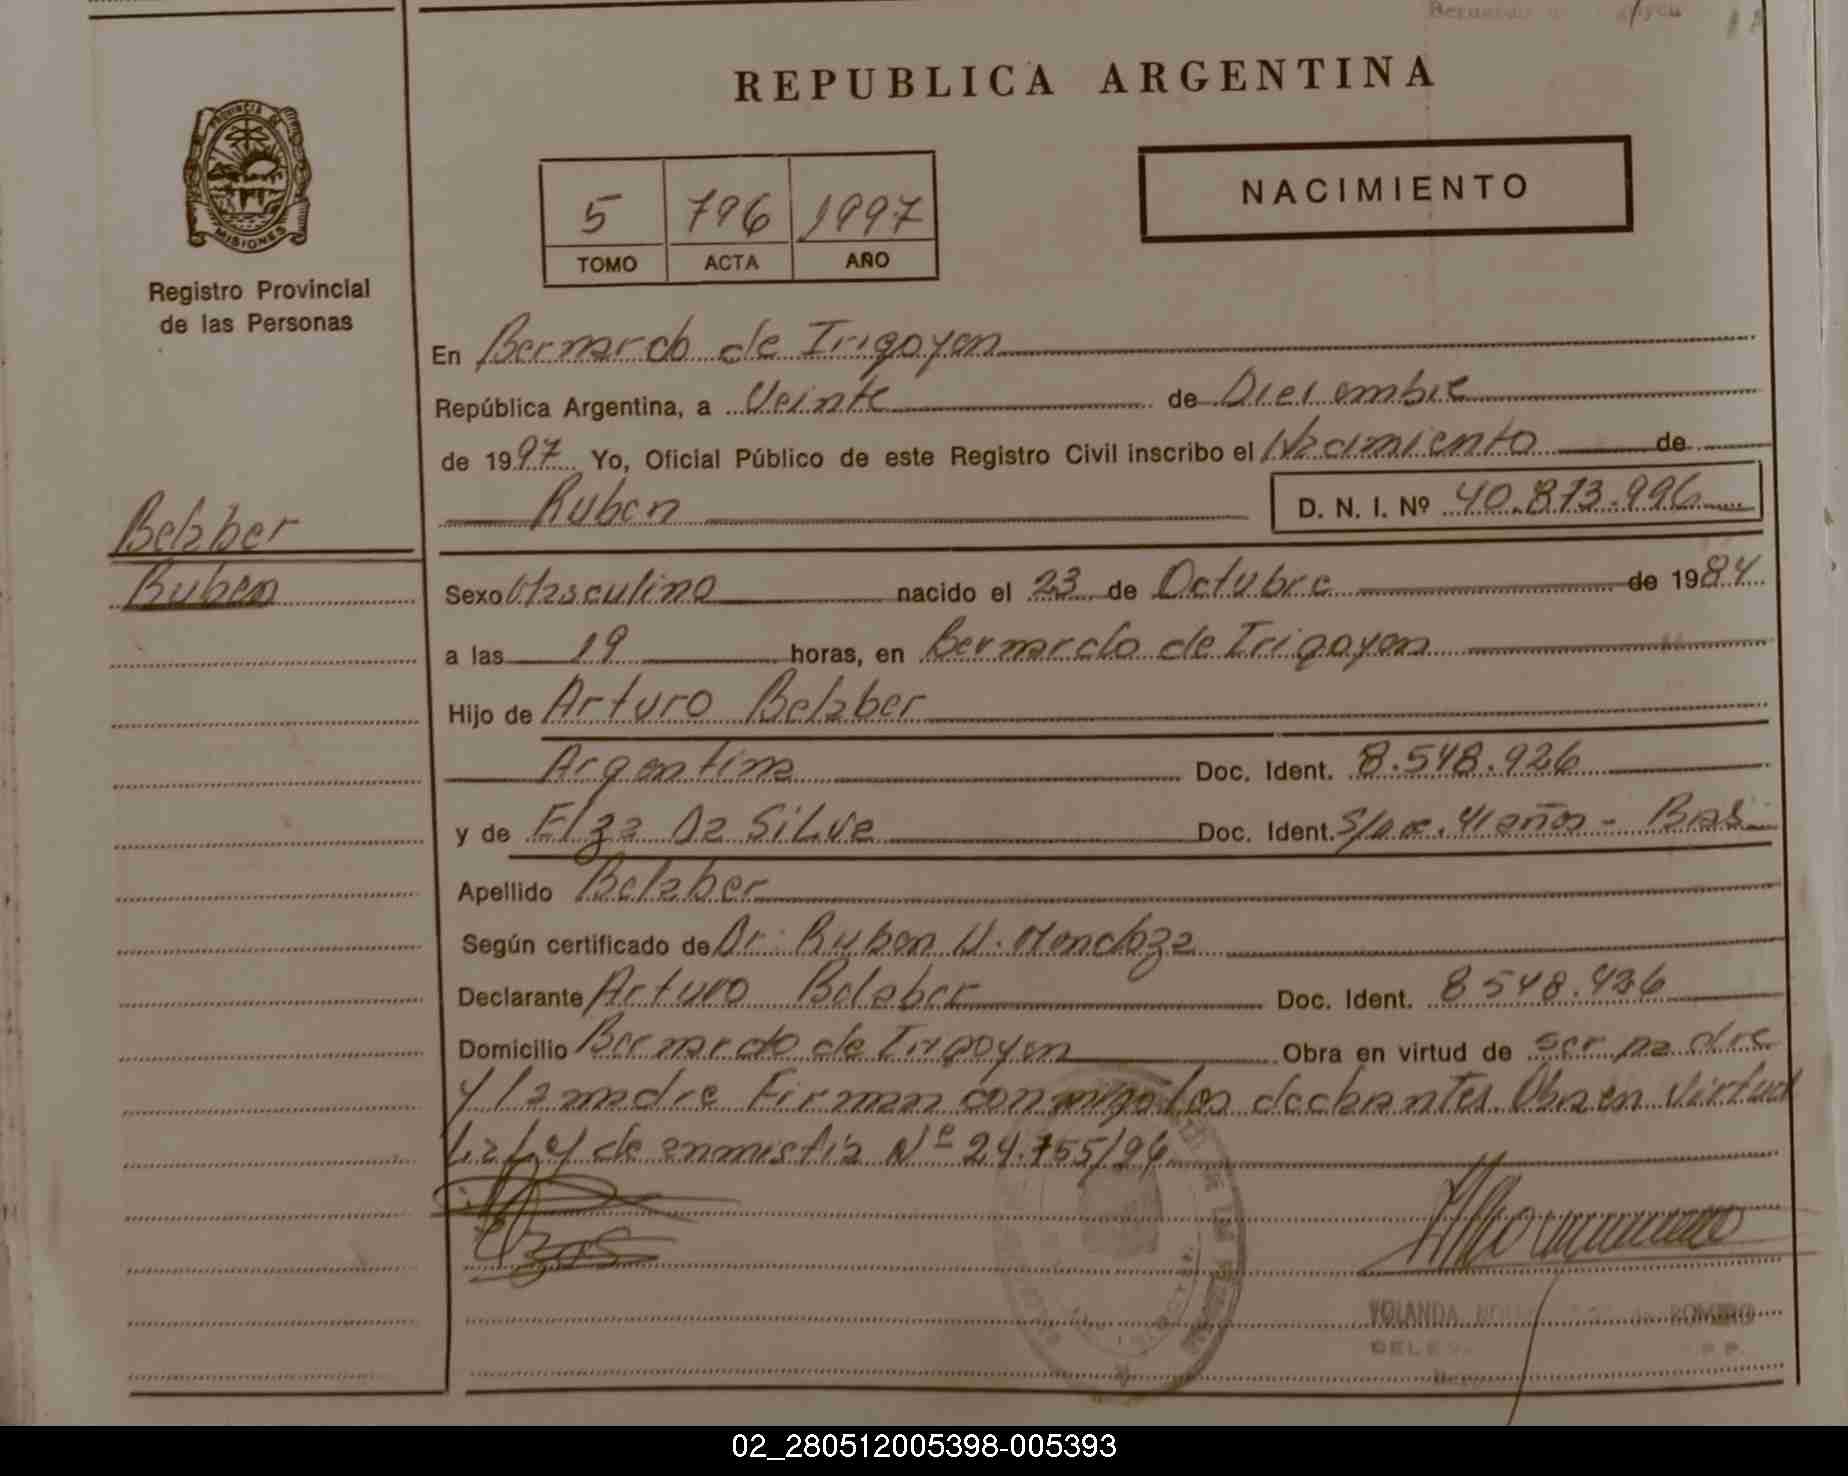 REPUBLICA ARGENTINA
PROVINCIA DE
MISIONES
Registro Provincial
de las Personas
5 796 1997
TOMO ACTA AÑO
NACIMIENTO
En Bernardo de Irigoyen
República Argentina, a Veinte de Diciembre
de 1997 Yo, Oficial Público de este Registro Civil inscribo el Nacimiento de
Ruben D. N. I. Nº 40.873.996
Belaber
Ruben
Sexo Masculino nacido el 23 de Octubre de 1984
a las 19 horas, en Bernardo de Irigoyen
Hijo de Arturo Belaber
Argentina Doc. Ident. 8.548.926
y de Elza Da Silva Doc. Ident. 41 años - Bras
Apellido Belaber
Según certificado de Dr. Ruben Mendoza
Declarante Arturo Belaber Doc. Ident. 8548.426
Domicilio Bernardo de Irigoyen Obra en virtud de ser padre
y la madre Firman conmigo los declarantes. Obra en virtud
La Ley de enmistia Nº 24.755/96
YOLANDA de ROMERO
02_280512005398-005393